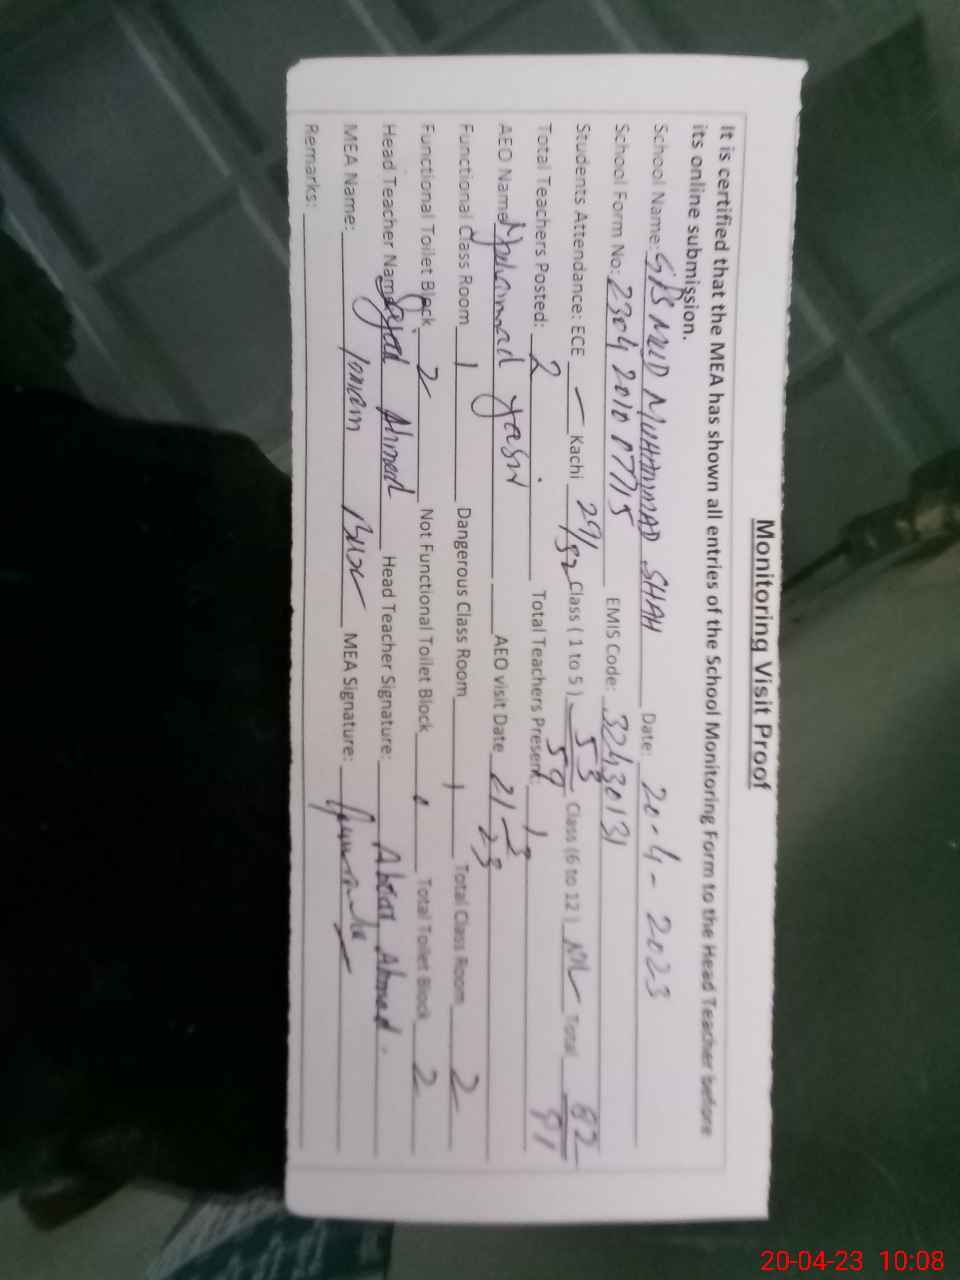 Monitoring Visit Proof
It is certified that the MEA has shown all entries of the School Monitoring Form to the Head Teacher before
its online submission.
School Name: MUHAMMAD SHAH Date: 20-4-2023
School Form No: 2304 2010 07715 EMIS Code: 32430131
Students Attendance: ECE — Kachi 29/32 Class (1 to 5) 53/59 Class (6 to 12) Total 82/91
Total Teachers Posted: 2 Total Teachers Present: 1
AEO Name Muhammad Yasin AEO visit Date 21-3-23
Functional Class Room 1 Dangerous Class Room 1 Total Class Room 2
Functional Toilet Block 2 Not Functional Toilet Block Total Toilet Block 2
Head Teacher Name Ahmed Head Teacher Signature: Ahmed
MEA Name: MEA Signature:
Remarks:
20-04-23 10:08